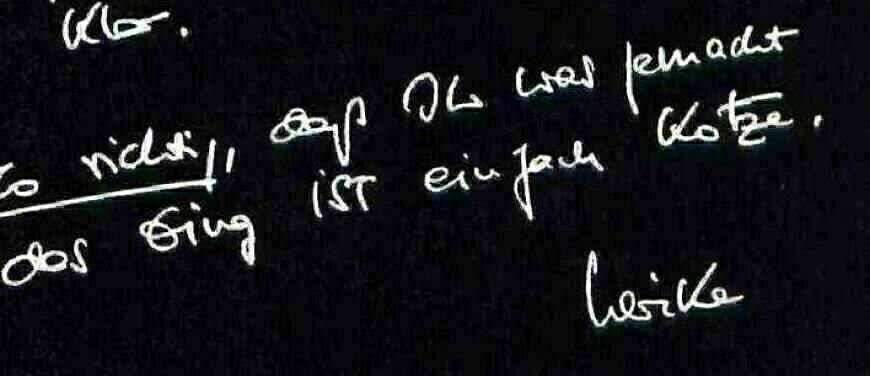 klar.
so richtig, daß Ihr was gemacht
das Ding ist einfach Kotze.
Ulrike